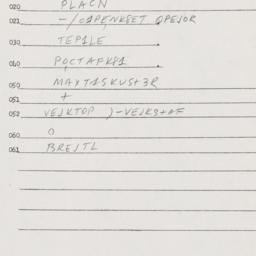 020 PLACN
021 -/OAPENKEET OPEJOR
030 TEPILE
040 POCTAFKPI
050 MAXTISKUS+3R
051 +
052 VEJKTOP )-VEJKS+AF
060 O
061 BREJTL